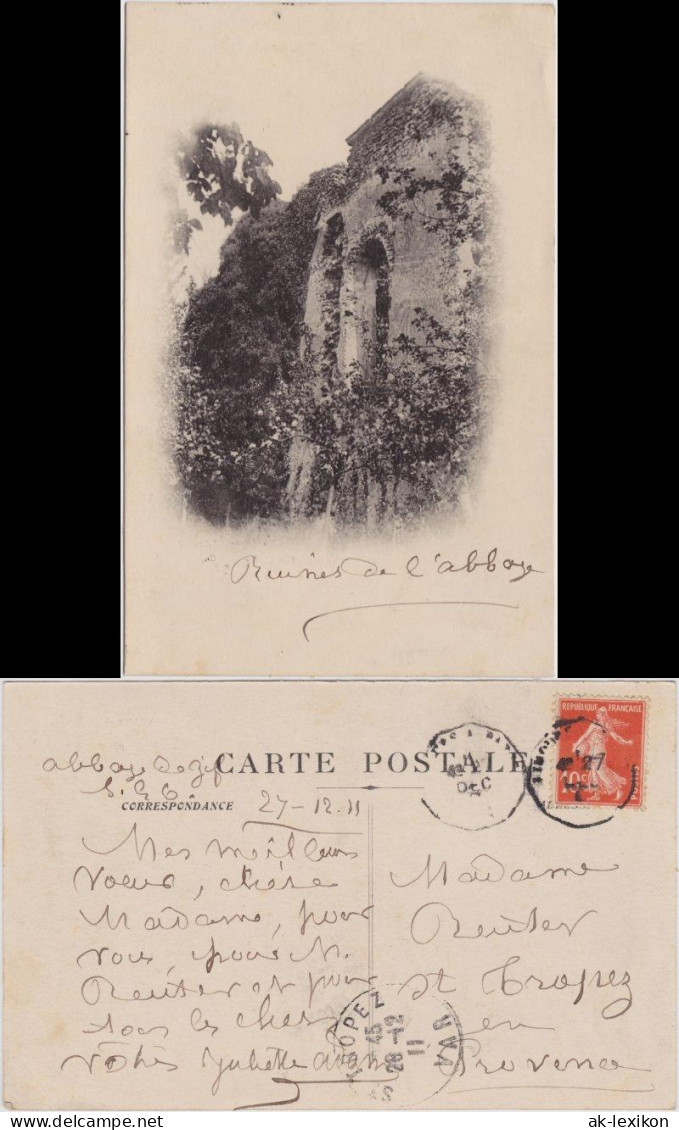 Ruines de l'abbaye
CARTE POSTALE
abbaye de gif
S. & O.
CORRESPONDANCE
27-12.11
Mes meilleurs
vœux, chère
Madame, pour
vous, pour M.
Reuter et pour
tous les chers
vôtres Juliette
Madame
Reuter
St Tropez
en
Provence
REPUBLIQUE FRANÇAISE
10c
POSTES
27
DEC
VAR
11
28-12
delcampe.net
ak-lexikon